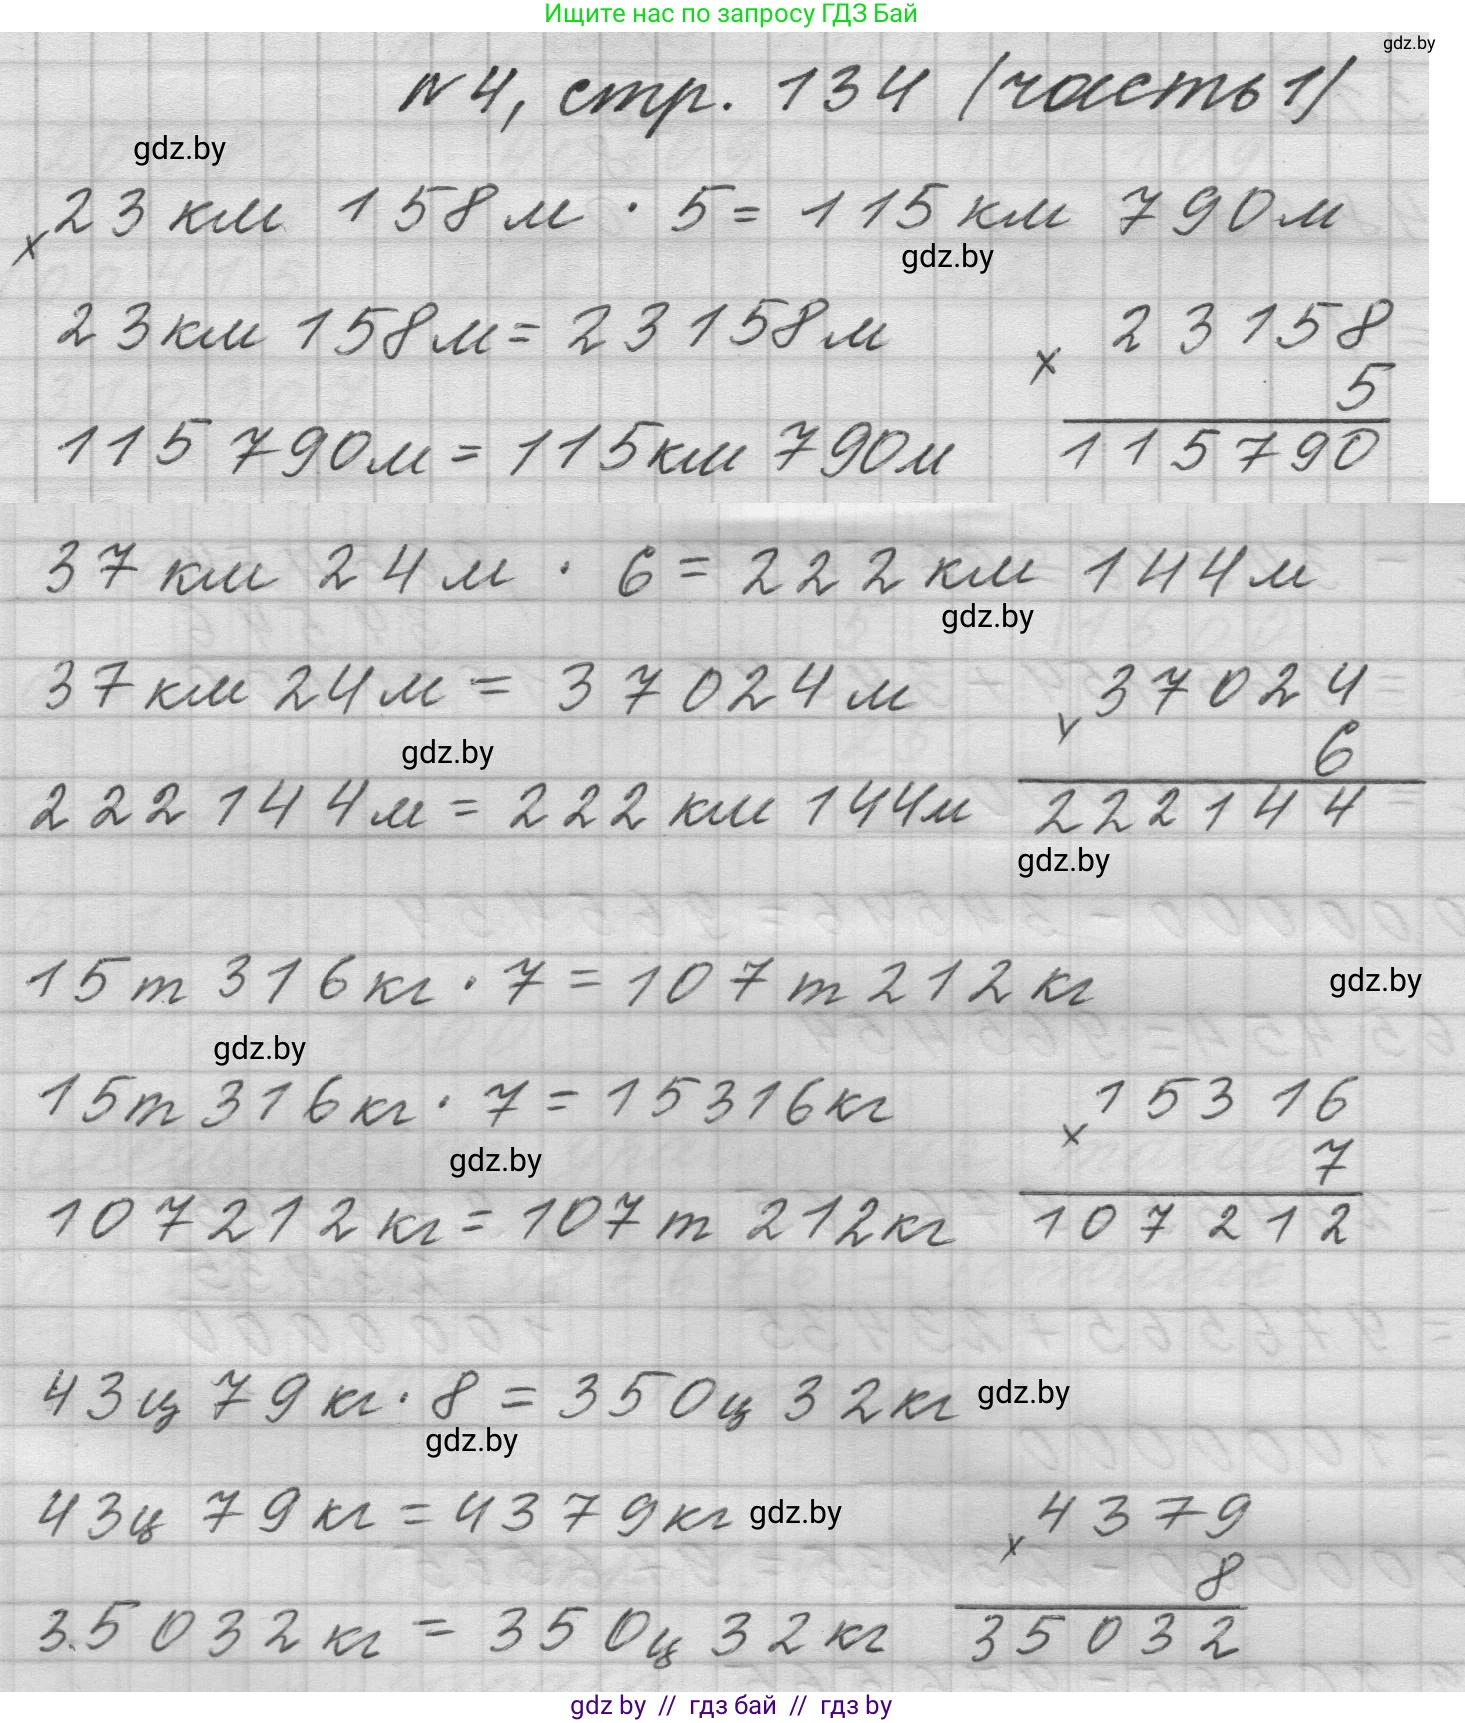 Ищите нас по запросу ГДЗ Бай
gdz.by
№4, стр. 134 (часть 1)
gdz.by
23 км 158 м · 5 = 115 км 790 м
х
gdz.by
23 км 158 м = 23158 м
23158
х
5
115 790 м = 115 км 790 м
115790
37 км 24 м · 6 = 222 км 144 м
gdz.by
37 км 24 м = 37024 м
37024
х
6
gdz.by
222144 м = 222 км 144 м
222144
gdz.by
15 т 316 кг · 7 = 107 т 212 кг
gdz.by
gdz.by
15 т 316 кг · 7 = 15316 кг
15316
х
7
gdz.by
107212 кг = 107 т 212 кг
107212
43 ц 79 кг · 8 = 350 ц 32 кг
gdz.by
gdz.by
43 ц 79 кг = 4379 кг
gdz.by
4379
х
8
35032 кг = 350 ц 32 кг
35032
gdz by // гдз бай // гдз by